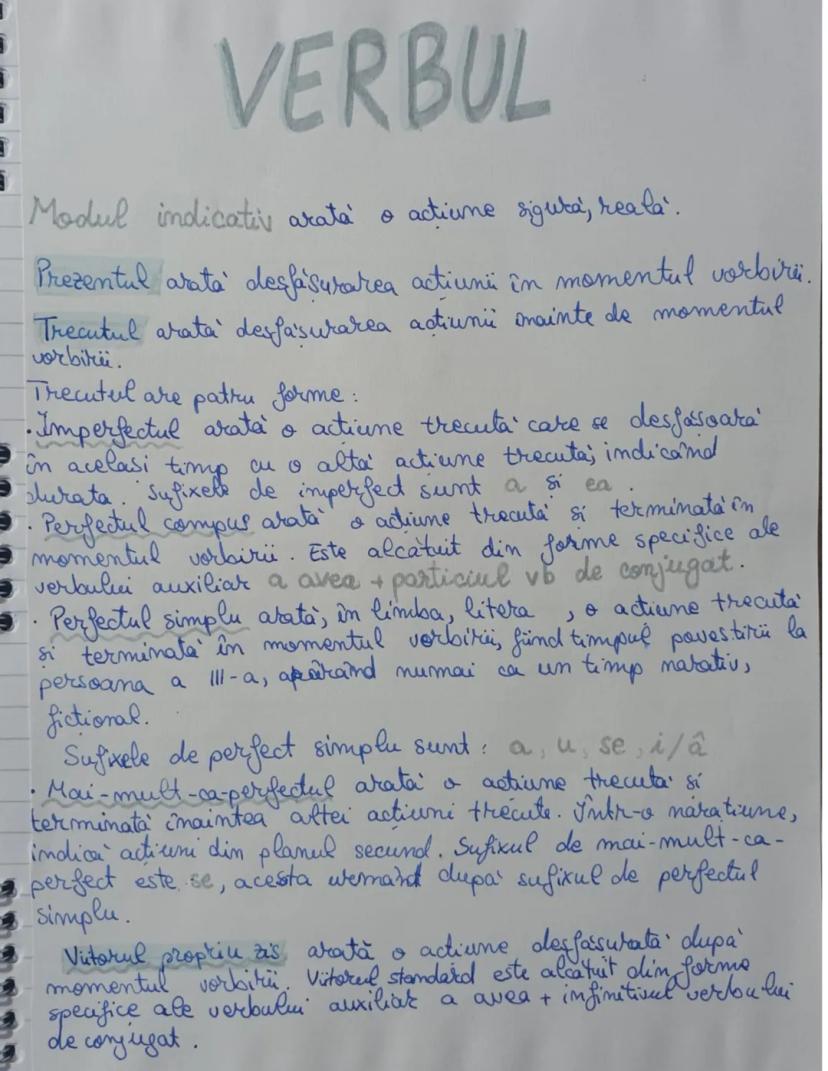 VERBUL
Modul indicativ arată o acțiune sigură, reală.
Prezentul arată desfășurarea acțiunii în momentul vorbirii.
Trecutul arată desfășurarea acțiunii înainte de momentul
vorbirii.
Trecutul are patru forme:
· Imperfectul arată o acțiune trecută care se desfășoară
în același timp cu o altă acțiune trecută, indicând
durata. Sufixele de imperfect sunt a și ea.
· Perfectul compus arată o acțiune trecută și terminată în
momentul vorbirii. Este alcătuit din forme specifice ale
verbului auxiliar a avea + particiul vb de conjugat.
· Perfectul simplu arată, în limba, litera , o acțiune trecută
și terminată în momentul vorbirii, fiind timpul povestirii la
persoana a III-a, apărând numai ca un timp narativ,
ficțional.
Sufixele de perfect simplu sunt: a, u, se, i/â
· Mai-mult-ca-perfectul arată o acțiune trecută și
terminată înaintea altei acțiuni trecute. Într-o narațiune,
indică acțiuni din planul secund. Sufixul de mai-mult-ca-
perfect este se, acesta urmând după sufixul de perfectul
simplu.
Viitorul propriu zis arată o acțiune desfășurată după
momentul vorbirii. Viitorul standard este alcătuit din forme
specifice ale verbului auxiliar a avea + infinitivul verbului
de conjugat.